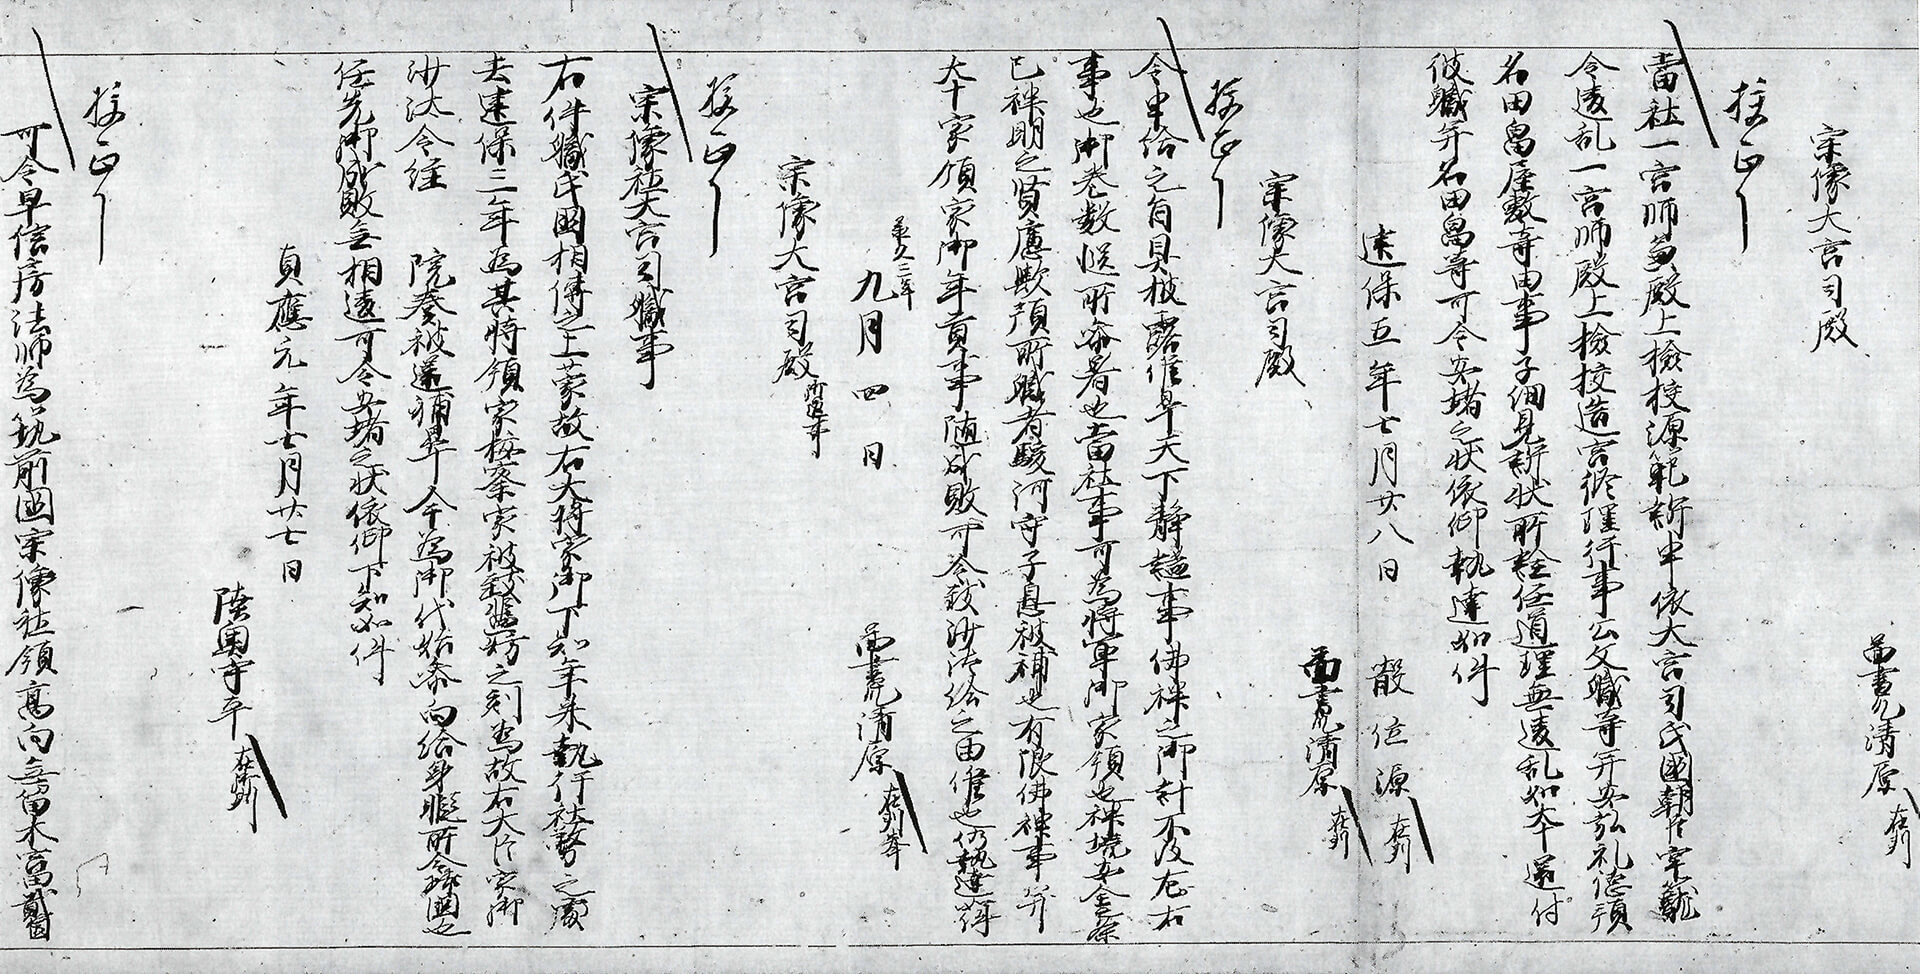 圖書允清原在判
宗像大宮司殿
按正了
當社一宮師兼殿上檢校源範新申依大宮司氏國朝臣牢籠
令違乱一宮師殿上檢校造宮修理行事公文職等并安弘礼徳預
名田畠屋敷等由事子細見解状所詮任道理無違乱如本還付
彼職并名田畠等可令安堵之状依仰執達如件
建保五年七月廿八日 散位源在判
圖書允清原在判
宗像大宮司殿
按正了
令申給之旨具披露候早天下静謐事佛神之御計不及左右
事也御巻数慥所令啓着也當社事可為将軍御家領也神境安全祭
已神明之賢慮歟預所職者駿河守子息被補也有限佛神事并
本家領家御年貢事随成敗可令致沙汰給之由候也仍執達如件
承久三年
九月四日 圖書允清原在判奉
宗像大宮司殿御返事
按正了
宗像社大宮司職事
右件職氏國相傳之上蒙故右大将家御下知年来執行社務之處
去建保三年為其時領家按察家被致濫妨之刻為故右大臣家御
沙汰令経 院奏被還補畢今為御代始参向給身暇所令歸國也
任先御成敗無相違可令安堵之状依仰下知如件
貞應元年七月廿七日
陸奥守平在判
按正了
可令早信房法師為筑前國宗像社領高向無留木冨貳箇